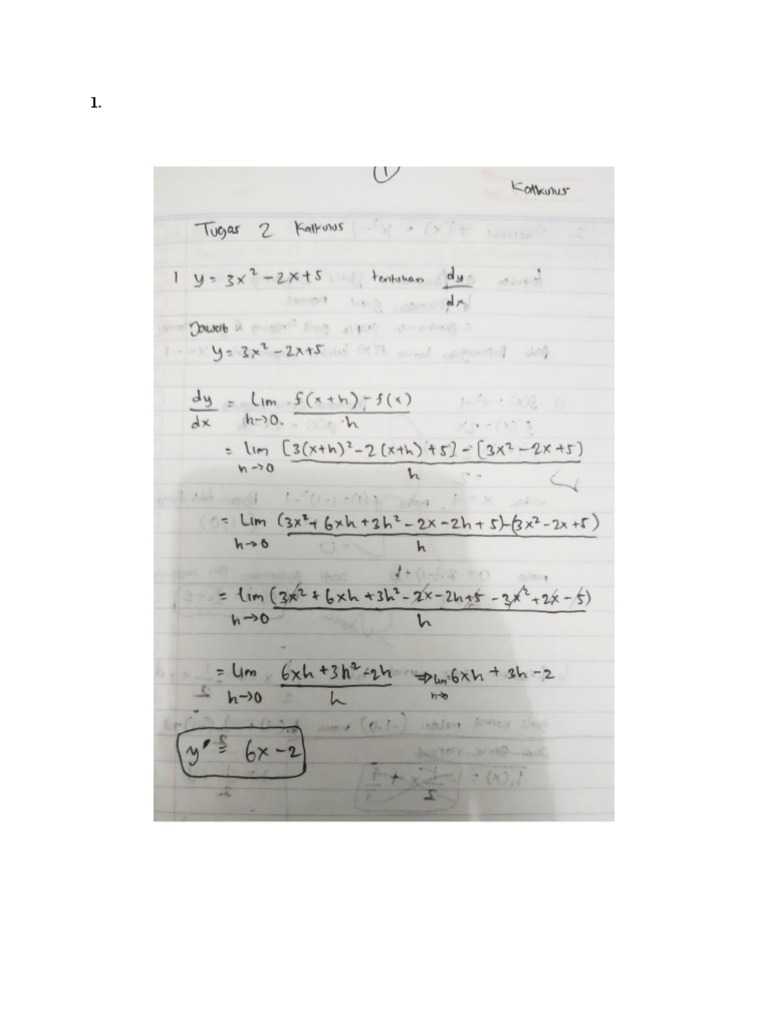 1.
1
Kalkulus
Tugas 2 Kalkulus
1 y = 3x² - 2x + 5 tentukan dy/dx
Jawab :
y = 3x² - 2x + 5
dy/dx = lim h→0. f(x+h) - f(x) / h
= lim h→0 [3(x+h)² - 2(x+h) + 5] - [3x² - 2x + 5] / h
= lim h→0 (3x² + 6xh + 3h² - 2x - 2h + 5) - (3x² - 2x + 5) / h
= lim h→0 (3x² + 6xh + 3h² - 2x - 2h + 5 - 3x² + 2x - 5) / h
= lim h→0 6xh + 3h² - 2h / h ⇒ lim h→0 6xh + 3h - 2
y' = 6x - 2